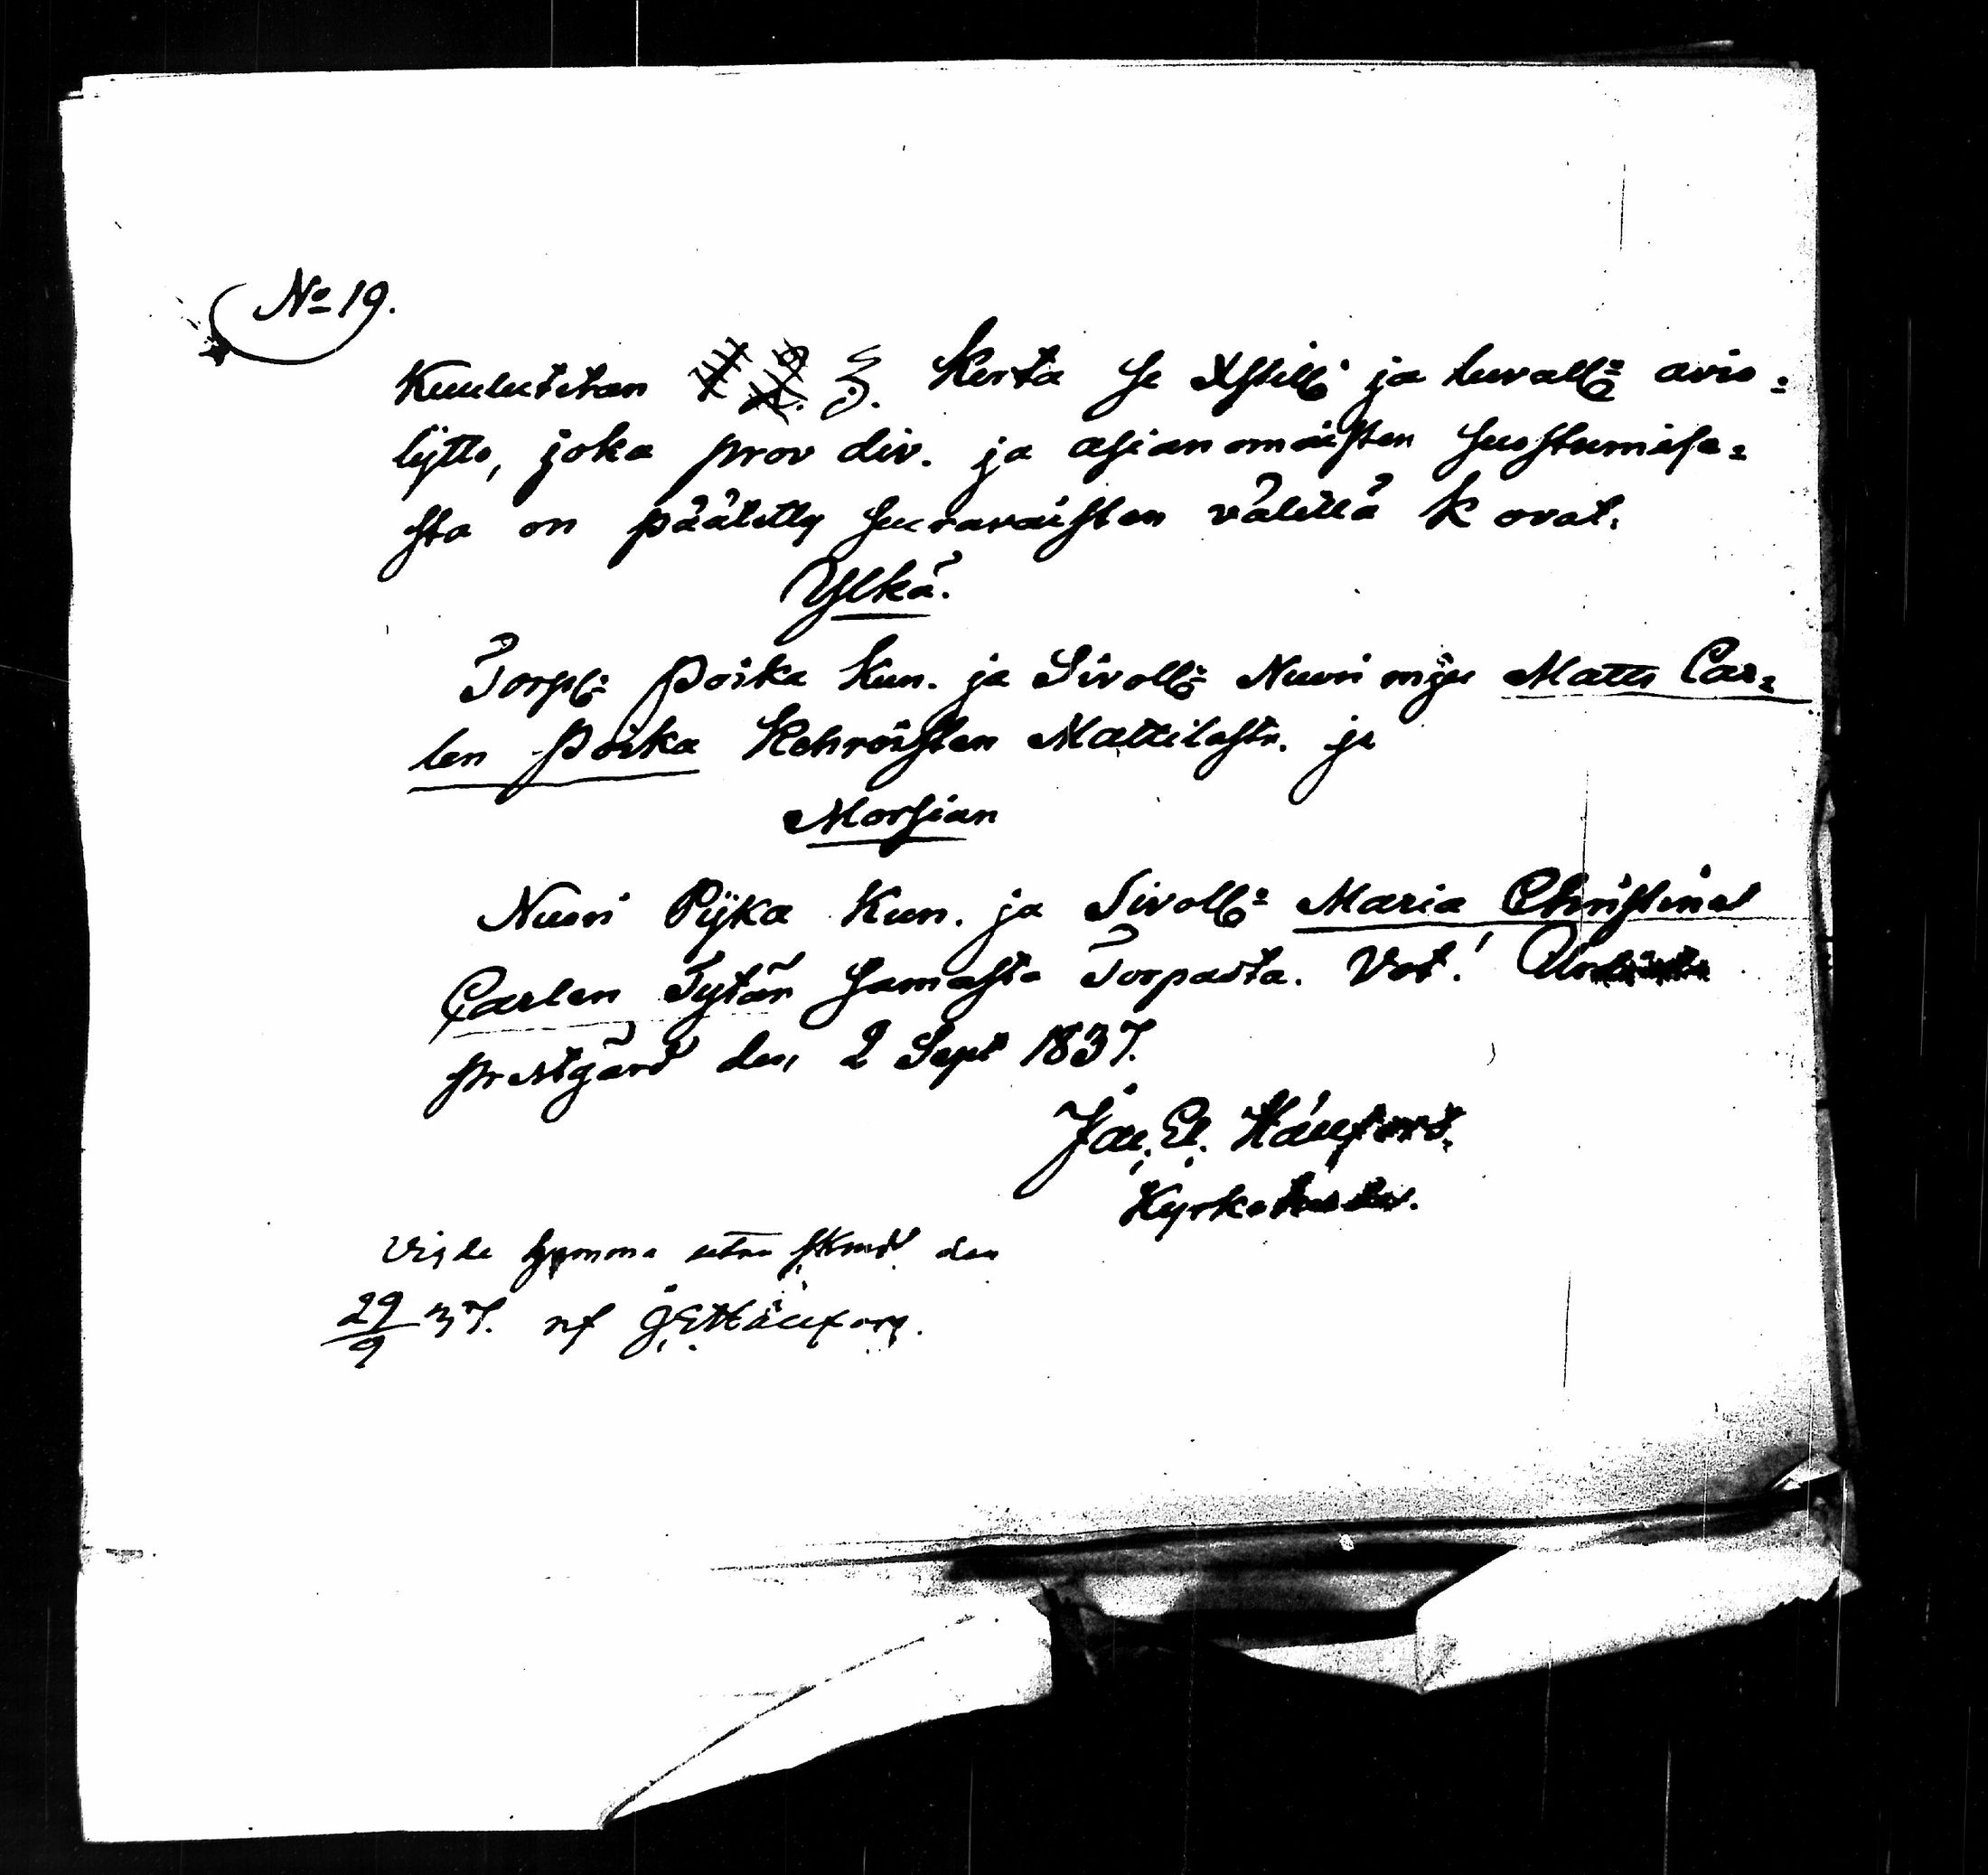 No 19.
Kuulutetan 3. Kerta se Xstill: ja luvall: avio=
lijtto, joka prov div. ja asianomaisten suostumise=
sta on päätetty seuravaisten välillä k ovat.
Ylkä.
Torp: Poika Kun. ja Sivoll: Nuori mjes Matts Car=
len Poika Kehroisten Mattilasta. ja
Morsian
Nuori Pijka Kun. ja Sivoll: Maria Christina
Carlen Tytär samasta Torpasta. Vet!
prestgård den 2 Sept 1837.
Jac. E.
Vigde hemma utan den
29/9 37. af